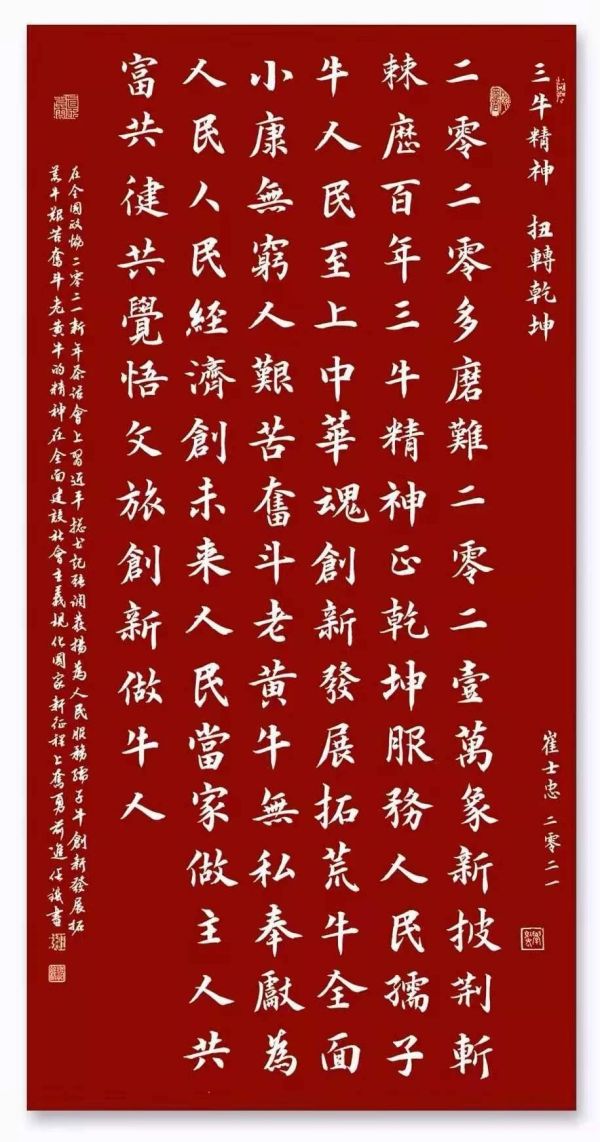 三牛精神 扭轉乾坤
崔士忠 二零二一
二零二零多磨難二零二壹萬象新披荆斬
棘歷百年三牛精神正乾坤服務人民孺子
牛人民至上中華魂創新發展拓荒牛全面
小康無窮人艱苦奮斗老黄牛無私奉獻為
人民人民經濟創未来人民當家做主人共
富共健共覺悟文旅創新做牛人
在全國政協二零二一新年茶話會上習近平總书記强调發揚為人民服務孺子牛創新發展拓
荒牛艱苦奮斗老黄牛的精神在全面建設社會主義現化國家新征程上奮勇前進書